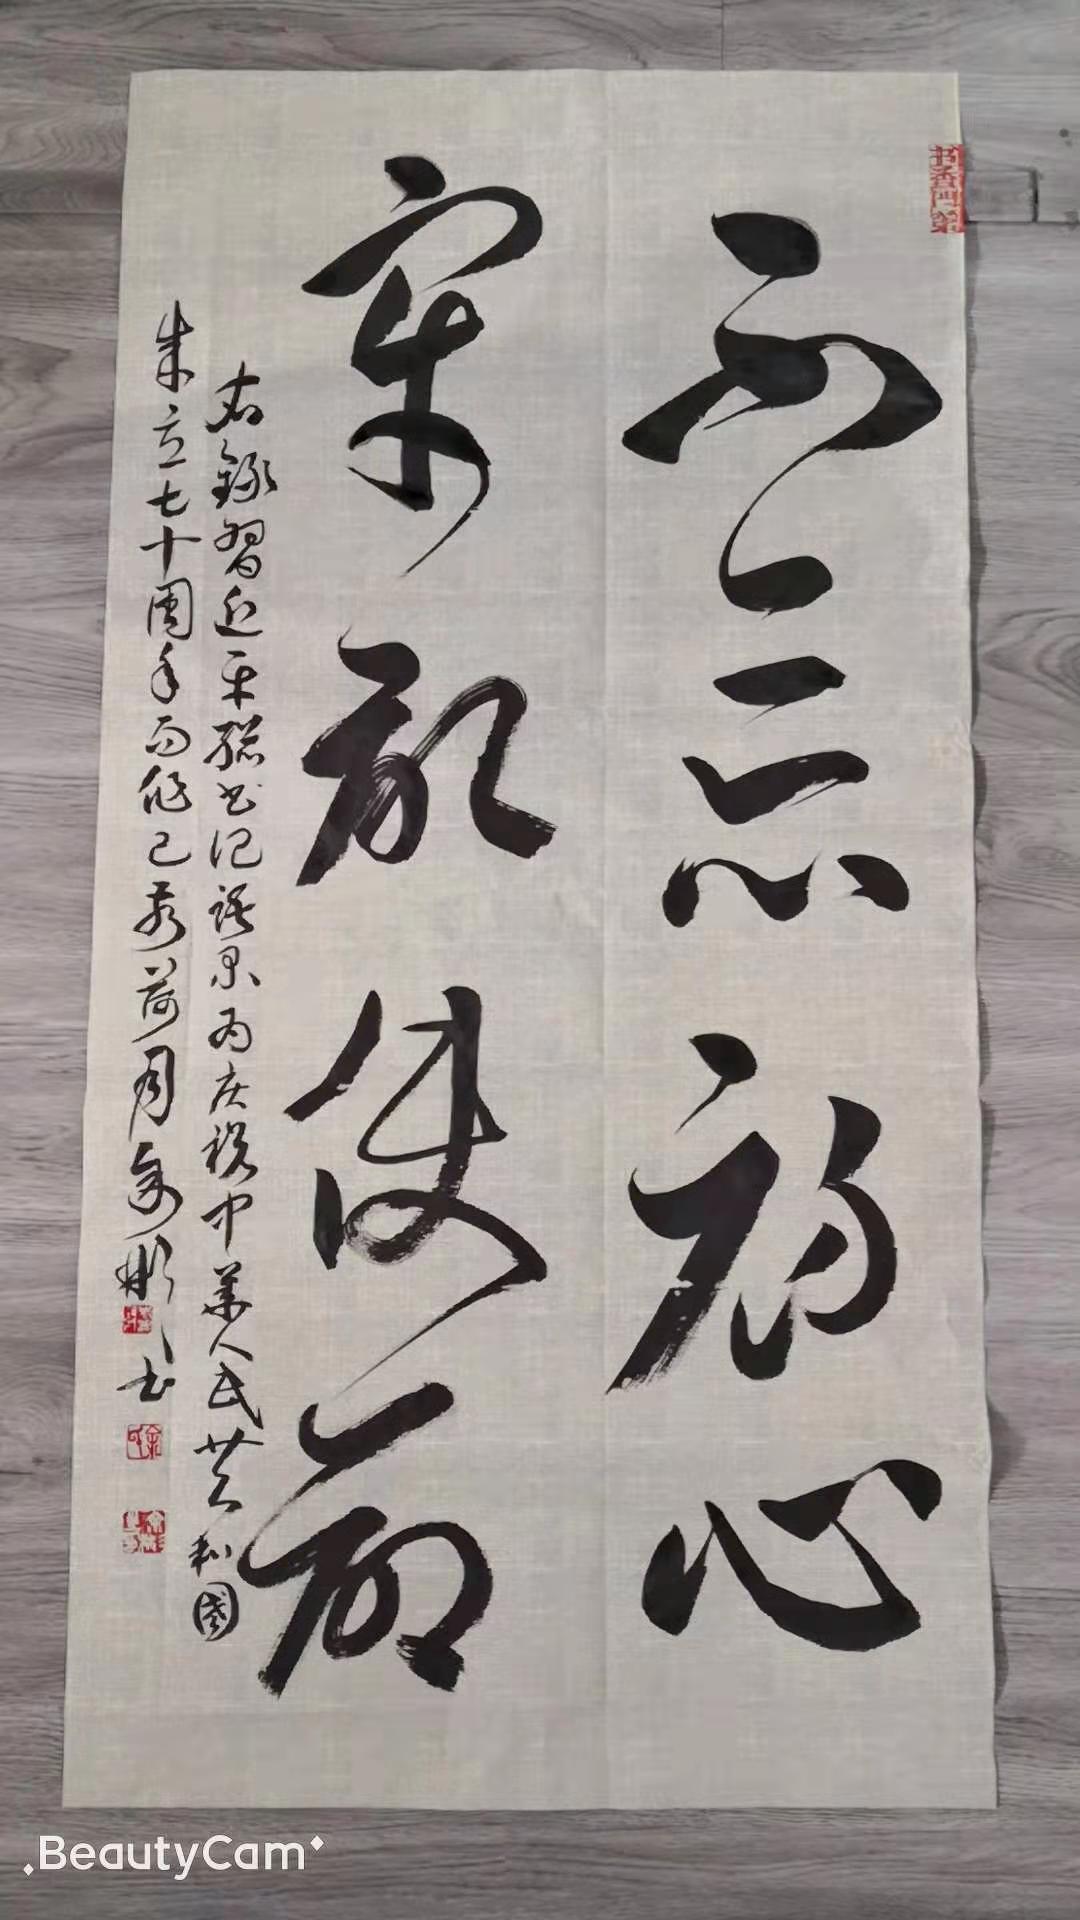 不忘初心
牢记使命
右錄習近平總书记語录为庆祝中華人民共和國
成立七十周年而作己亥荷月余彬书
书香門第
BeautyCam